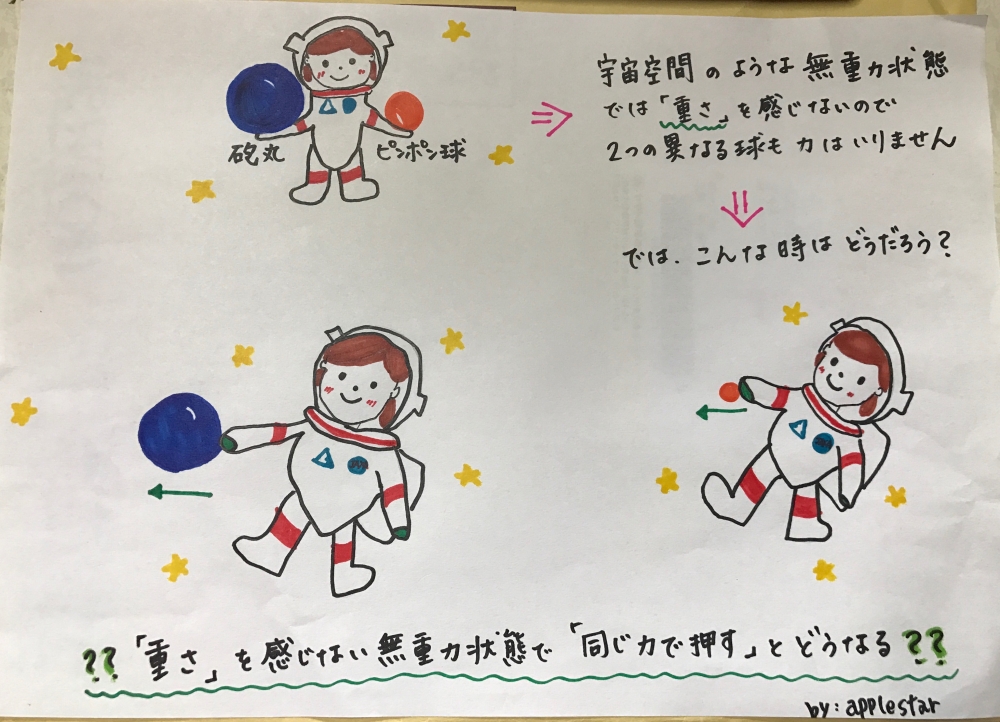 砲丸
ピンポン球
宇宙空間のような無重力状態
では「重さ」を感じないので
2つの異なる球も力はいりません
では、こんな時はどうだろう?
??「重さ」を感じない無重力状態で「同じ力で押す」とどうなる??
by: applestar